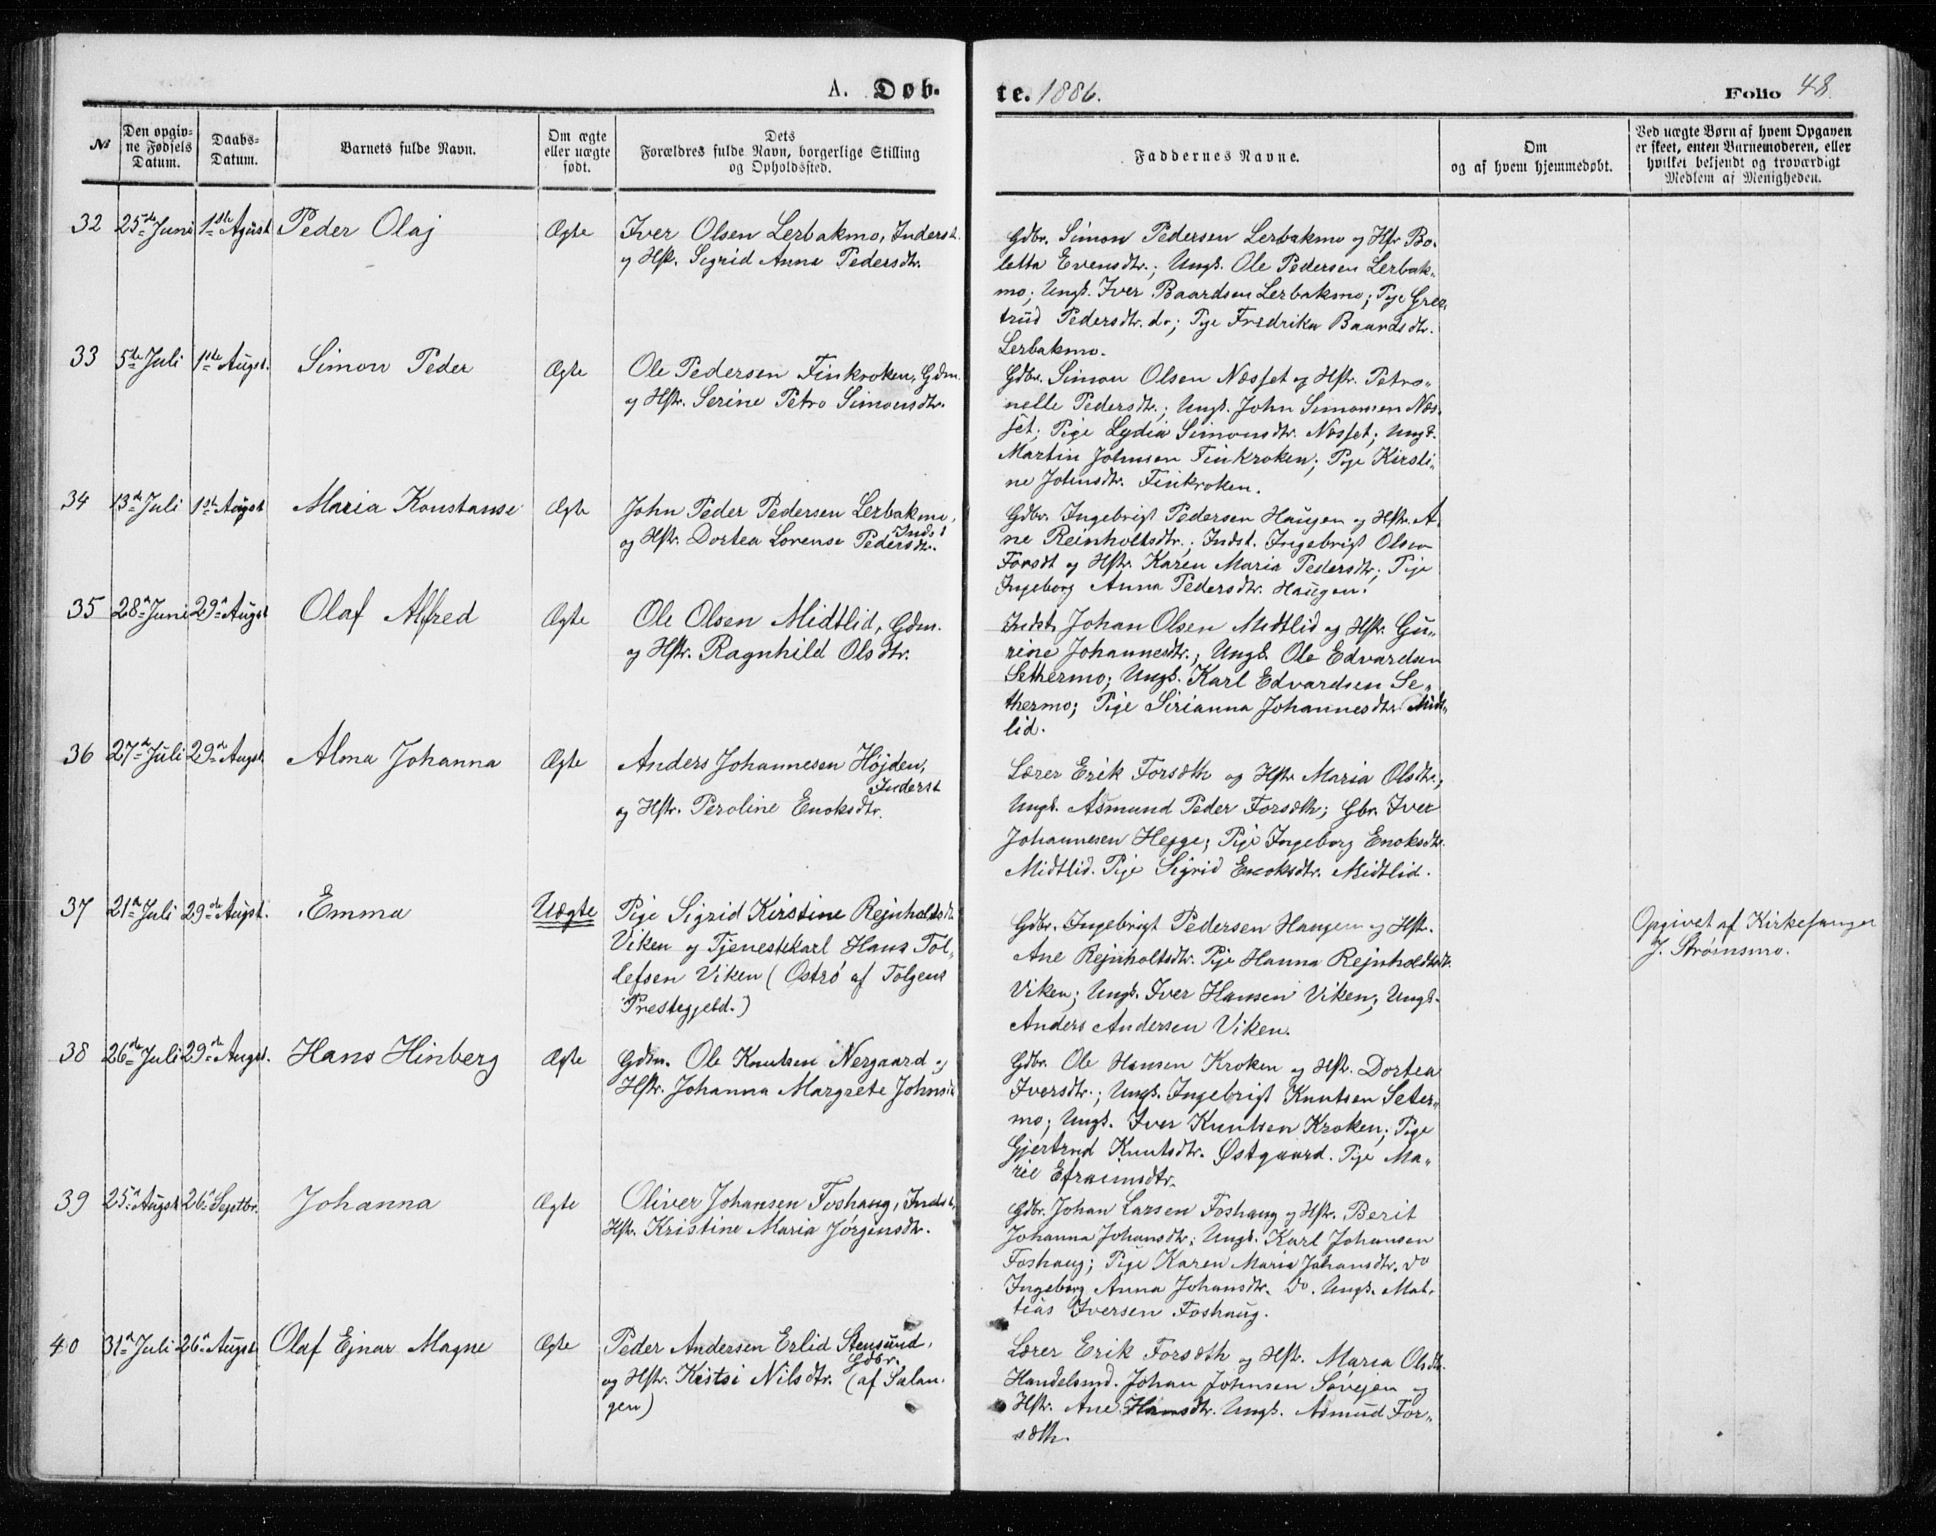 A. Døb-
te. 1886.
Folio 48
№
Den opgiv-
ne Fødsels
Datum.
Daabs-
Datum.
Barnets fulde Navn.
Om ægte
eller uægte
født.
Dets
Forældres fulde Navn, borgerlige Stilling
og Opholdssted.
Faddernes Navne.
Om
og af hvem hjemmedøbt.
Ved uægte Børn af hvem Opgaven
er skeet, enten Barnemoderen, eller
hvilket bekjendt og troværdigt
Medlem af Menigheden.
32 25de Juni 1ste Agust Peder Olaj Ægte
Iver Olsen Lerbakmo, Inderst.
og Hst. Sigrid Anna Pedersdtr.
Gdbr. Simon Pedersen Lerbakmo og Hstr Bo-
letta Evensdtr.; Ungk. Ole Pedersen Lerbak-
mo; Ungk. Iver Baardsen Lerbakmo; Pige Gree-
trud Pedersdtr. do; Pige Fredrika Baardsdtr.
Lerbakmo.
33 5te Juli 1ste Augst. Simon Peder Ægte
Ole Pedersen Finkroken, Gdm.
og Hstr. Serine Petro Simonsdtr.
Gdbr. Simon Olsen Næsset og Hstr. Petro-
nelle Pedersdtr.; Ungk. John Simonsen Næs-
set; Pige Lydia Simonsdtr. Næsset; Ungk.
Martin Johnsen Finkroken; Pige Kirsti-
ne Johnsdtr. Finkroken.
34 13de Juli 1ste Augst Maria Konstanse Ægte
John Peder Pedersen Lerbakmo,
Indst
og Hstr. Dortea Lorense Pedersdtr.
Gdbr. Ingebrigt Pedersen Haugen og Hstr. A-
ne Reinholtsdtr.; Indst. Ingebrigt Olsen
Forsdt og Hstr. Karen Maria Pedersdtr; Pige
Ingeborg Anna Pedersdtr. Haugen.
35 28de Juni 29de Augst Olaf Alfred Ægte
Ole Olsen Midtlid, Gdm.
og Hstr. Ragnhild Olsdtr.
Indst. Johan Olsen Midtlid og Hstr. Gu-
rine Johannesdtr.; Ungk. Ole Edvardsen
Sethermo; Ungk. Karl Edvardsen Se-
thermo; Pige Sirianna Johannesdtr. Midt-
lid.
36 27de Juli 29de Augst. Alma Johanna Ægte
Anders Johannesen Højden,
Inderst
og Hstr. Peroline Enoksdtr.
Lærer Erik Forsæth og Hstr. Maria Olsdtr.;
Ungk. Asmund Peder Forsæth; Gbr. Iver
Johannesen Hegge; Pige Ingeborg Enoksdtr.
Midtlid. Pige Sigrid Enoksdtr. Midtlid.
37 21de Juli 29de Augst. Emma Uægte
Pige Sigrid Kirstine Rejnholdsdt
Viken og Tjenestekarl Hans Tol-
lefsen Viken (Østrø af Tolgens
Prestegjeld.)
Gdbr. Ingebrigt Pedersen Haugen og Hstr.
Ane Rejnholtsdtr. Pige Hanna Rejnholdtsdtr.
Viken; Ungk. Iver Hansen Viken; Ungk.
Anders Andersen Viken.
Opgivet af Kirkesanger
J. Strømsmo.
38 26de Juli 29de Augst. Hans Hinberg Ægte
Gdm. Ole Knutsen Nergaard og
Hstr. Johanna Margrete Johnsd
Gdbr. Ole Hansen Kroken og Hstr. Dortea
Iversdtr.; Ungk. Ingebrigt Knutsen Seter-
mo; Ungk. Iver Knutsen Kroken; Pige
Gjertrud Knutsdtr. Østgaard. Pige Ma-
rie Efraimsdtr.
39 25de Augst 26de Septbr. Johanna Ægte
Oliver Johansen Foshaug, Indst,
Hstr. Kristine Maria Jørgensdtr.
Gdbr. Johan Larsen Foshaug og Hstr. Berit
Johanna Johansdtr; Ungk. Karl Johansen
Foshaug; Pige Karen Maria Johansdtr. do
Ingeborg Anna Johansdtr. do. Ungk. Mat-
tias Iversen Foshaug.
40 31de Juli 26de Augst. Olaf Ejnar Magne Ægte
Peder Andersen Erlid Stensund,
Gdbr.
og Hstr. Kistsi Nilsdtr. (af Salan-
gen)
Lærer Erik Forsæth og Hstr. Maria Olsdtr.
Handelsmd. Johan Johnsen Søvejen og
Hstr. Ane Hansdtr. Ungk. Asmund For-
sæth.